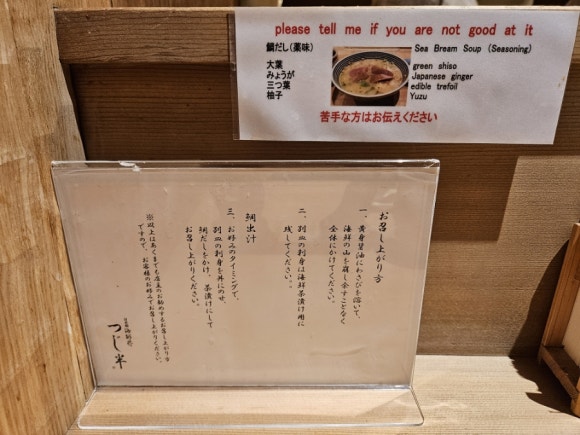 please tell me if you are not good at it
鯛だし(薬味)
Sea Bream Soup (Seasoning)
大葉
green shiso
みょうが
Japanese ginger
三つ葉
edible trefoil
柚子
Yuzu
苦手な方はお伝えください
お召し上がり方
一、黄身醤油にわさびを溶いて、
海鮮の山を崩し余すことなく
全体にかけてください。
二、別皿の刺身は海鮮茶漬け用に
残してください。
鯛出汁
三、お好みのタイミングで、
別皿の刺身を丼にのせ、
鯛だしをかけ、茶漬けにして
お召し上がりください。
※以上はあくまでも店主のお勧めするお召し上がり方
ですので、お客様のお好みでお召し上がりください。
日本橋海鮮丼
つじ半